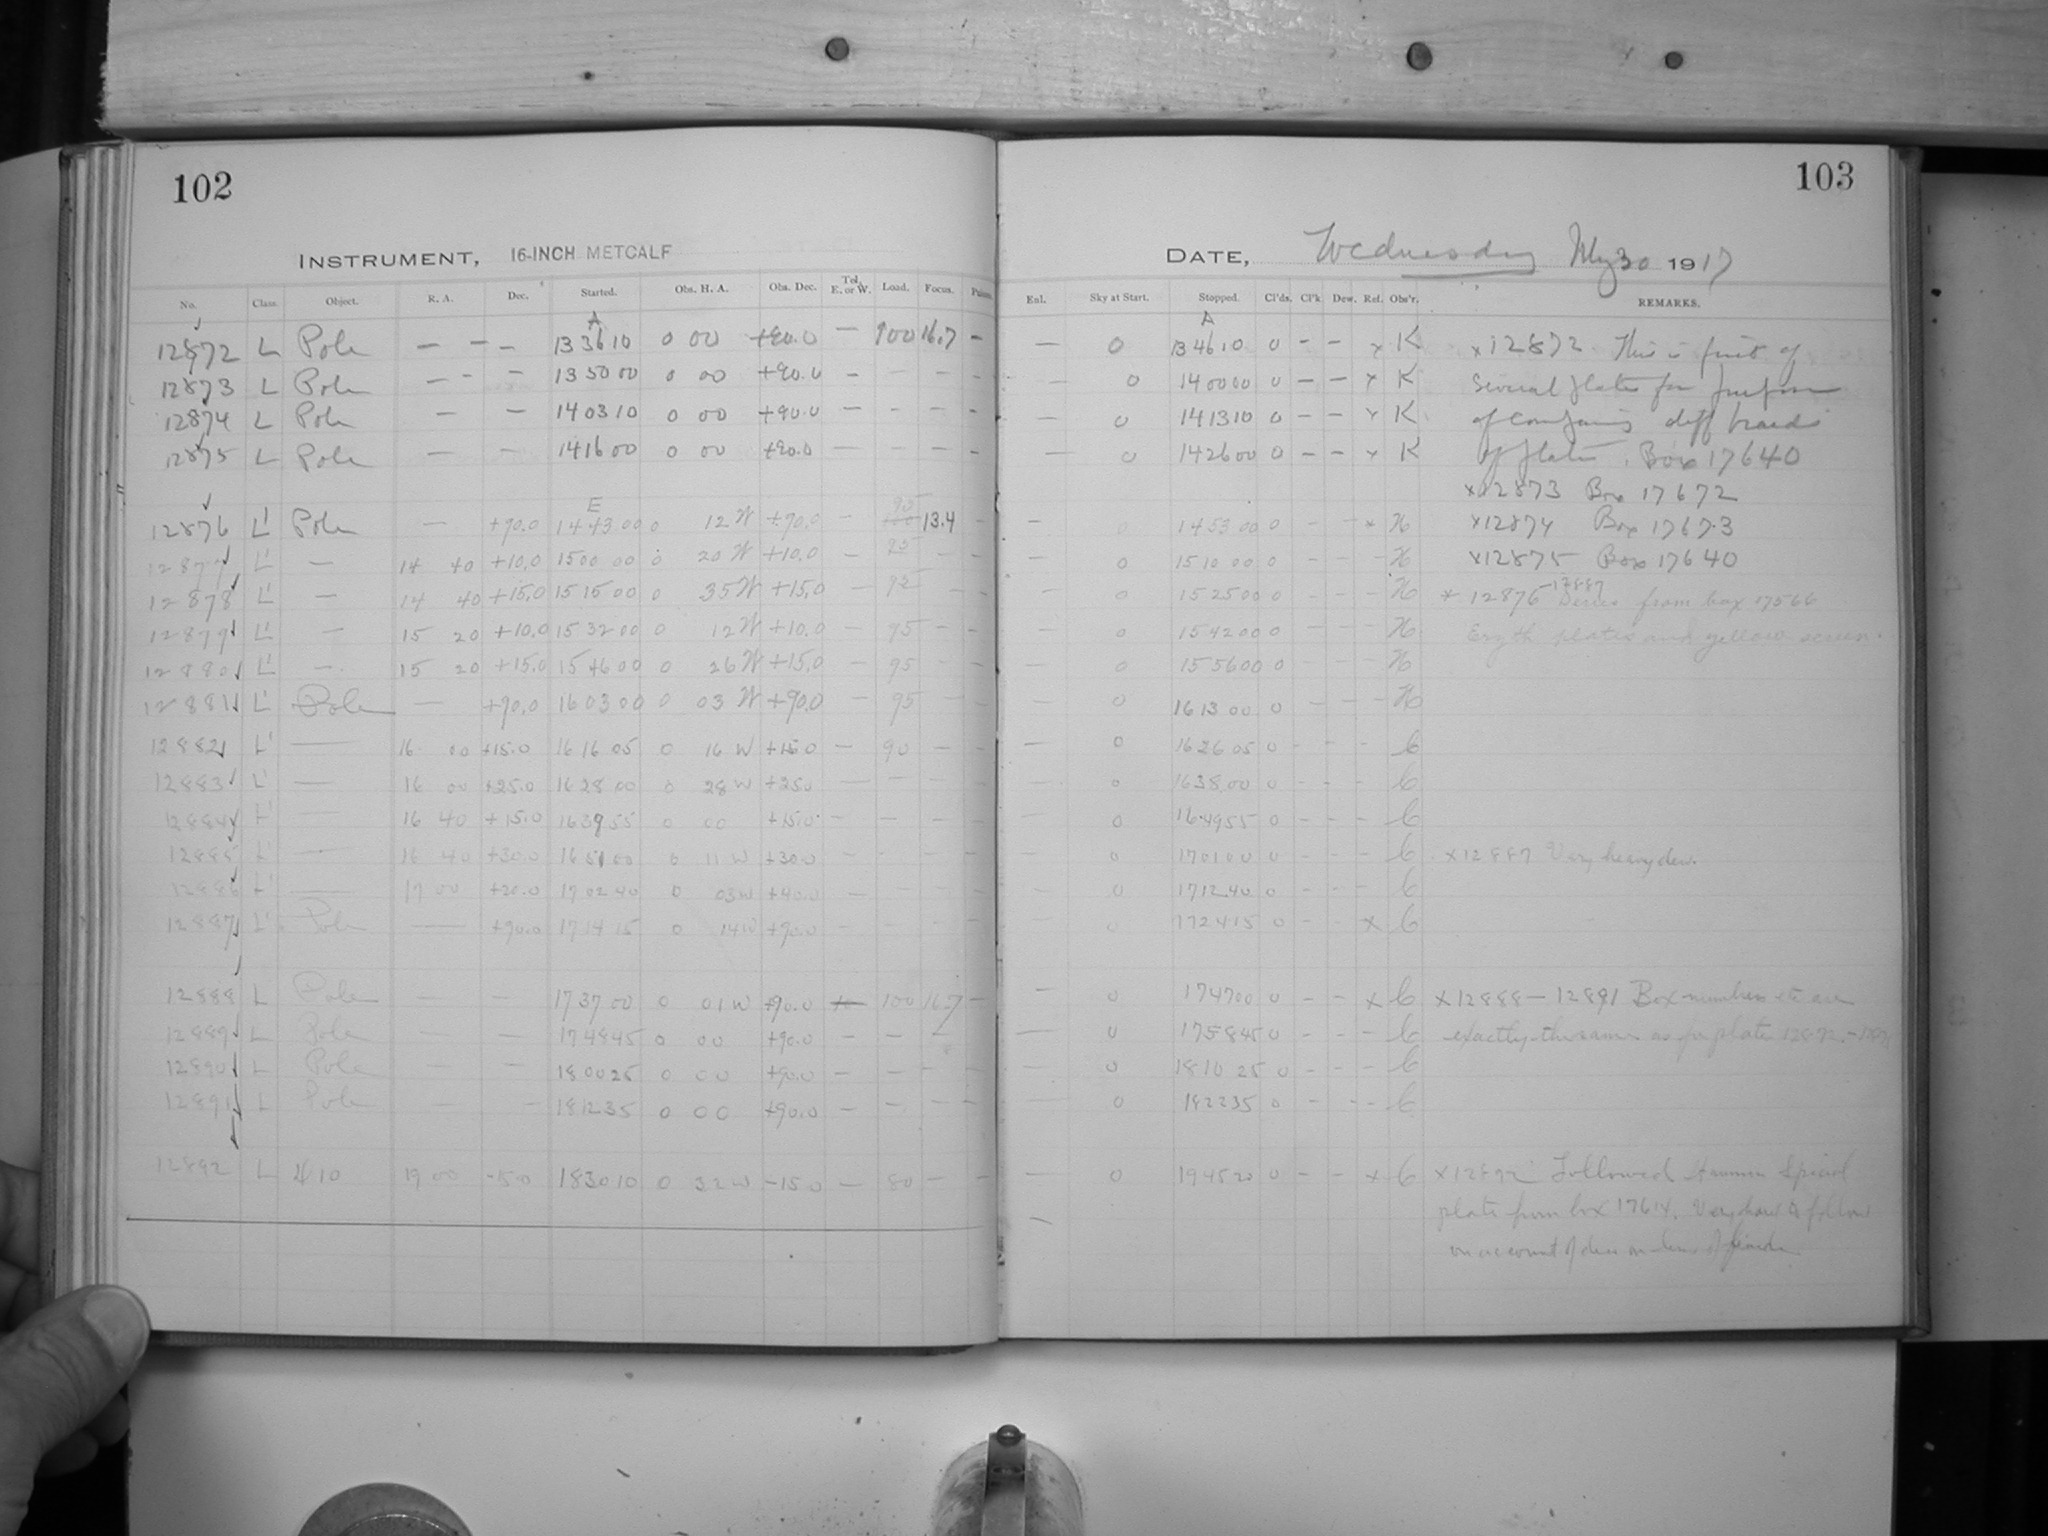 102
INSTRUMENT, 16-INCH METCALF
No. Class. Object. R. A. Dec. Started. Obs. H. A. Obs. Dec. Tel. E. or W. Load. Focus.
12872 L Pole — — — A 13 36 10 0 00 +90.0 — 100 16.7 -
12873 L Pole — - — 13 50 00 0 00 +90.0 - - - -
12874 L Pole — — 14 03 10 0 00 +90.0 — - - -
12875 L Pole — — 14 16 00 0 00 +90.0 — - - -
12876 L' Pole — +90.0 E 14 43 00 0 12 W +90.0 - 95 13.4 -
12877 L' — 14 40 +10.0 15 00 00 0 20 W +10.0 - 95 - -
12878 L' — 14 40 +15.0 15 15 00 0 35 W +15.0 - 95 - -
12879 L' — 15 20 +10.0 15 32 00 0 12 W +10.0 - 95 - -
12880 L' — 15 20 +15.0 15 46 00 0 26 W +15.0 - 95 - -
12881 L' Pole — +90.0 16 03 00 0 03 W +90.0 - 95 - -
12882 L' — 16 00 +15.0 16 16 05 0 16 W +15.0 - 90 - -
12883 L' — 16 00 +25.0 16 28 00 0 28 W +25.0 — - - -
12884 L' — 16 40 +15.0 16 39 55 0 00 +15.0 - - - -
12885 L' — 16 40 +30.0 16 51 00 0 11 W +30.0 - - - -
12886 L' — 17 00 +20.0 17 02 40 0 03 W - - - -
12887 L' Pole — +90.0 17 14 15 0 14 W +90.0 - - - -
12888 L Pole — — 17 37 00 0 01 W +90.0 100 16.7 -
12889 L Pole — — 17 48 45 0 00 +90.0 - - -
12890 L Pole — — 18 00 25 0 00 +90.0 - - - -
12891 L Pole — — 18 12 35 0 00 +90.0 - - - -
12892 L 410 19 00 -15.0 18 30 10 0 32 W -15.0 — 80 - -
103
DATE, Wednesday May 30 1917
Enl. Sky at Start. Stopped. Cl'ds. Cl'k Dew. Ref. Obs'r. REMARKS.
— 0 A 13 46 10 0 - - x K x12872 This is first of
— 0 14 00 00 0 - - x K several plates for purpose
— 0 14 13 10 0 - - x K of comparing diff brands
— 0 14 26 00 0 - - x K of plates. Box 17640
x12873 Box 17672
— 0 14 53 00 0 - - x H x12874 Box 17673
— 0 15 10 00 0 - - - H x12875 Box 17640
— 0 15 25 00 0 - - - H x 12876 12887 Series from box 17566
— 0 15 42 00 0 - - - H Eryth plates and yellow screen.
— 0 15 56 00 0 - - - H
— 0 16 13 00 0 - - - H
— 0 16 26 05 0 - - - C
— 0 16 38 00 0 - - - C
— 0 16 49 55 0 - - - C
— 0 17 01 00 0 - - - C x12887 Very heavy dew.
— 0 17 12 40 0 - - - C
— 0 17 24 15 0 - - x C
— 0 17 47 00 0 - - x C x12888 — 12891 Box numbers etc are
— 0 17 58 45 0 - - - C exactly the same as for plates 12872 -
— 0 18 10 25 0 - - - C
— 0 18 22 35 0 - - - C
— 0 19 45 20 0 - - x C x12892 Followed Special
plate from box 17614. Very hard to follow
on account of dew on lens of finder.